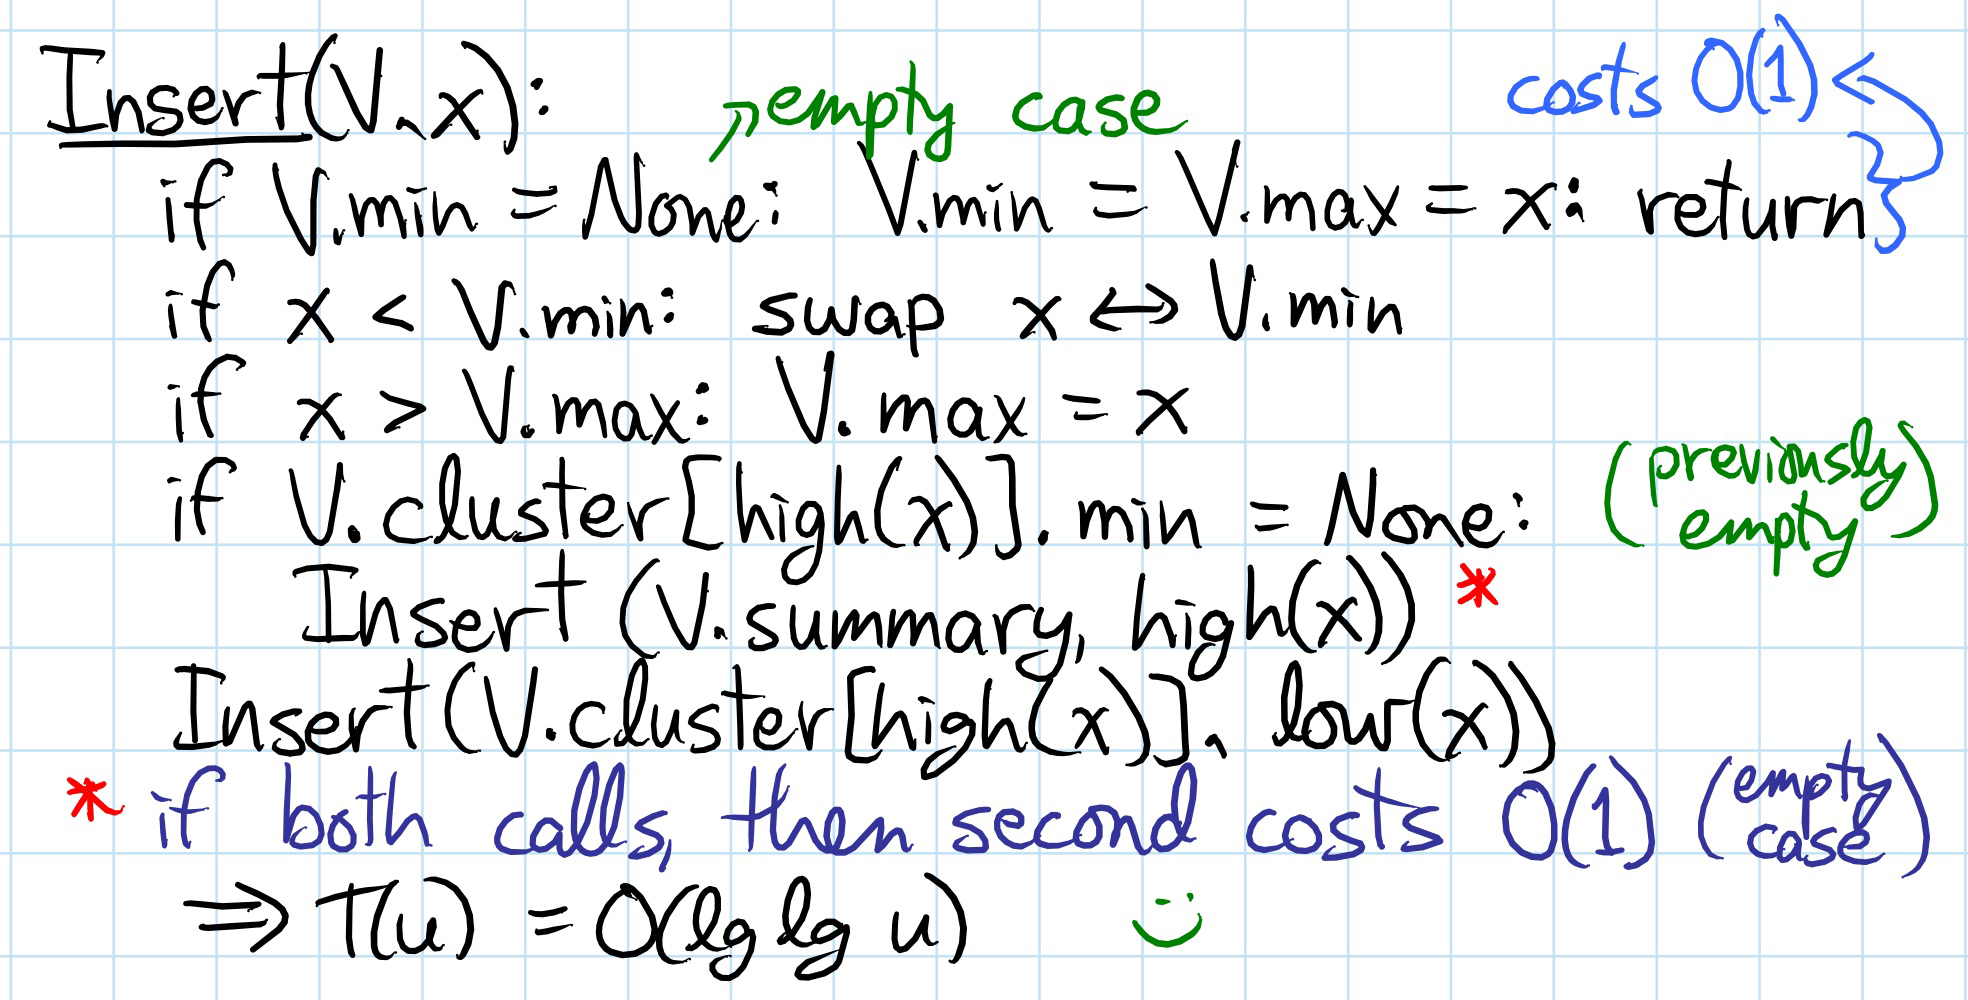 Insert(V, x):
↗ empty case
costs O(1)
if V.min = None: V.min = V.max = x: return}
if x < V.min: swap x ↔ V.min
if x > V.max: V.max = x
if V.cluster[high(x)].min = None: (previously
empty)
Insert (V.summary, high(x)) *
Insert(V.cluster[high(x)], low(x))
* if both calls, then second costs O(1) (empty
case)
⇒ T(u) = O(lg lg u) :)